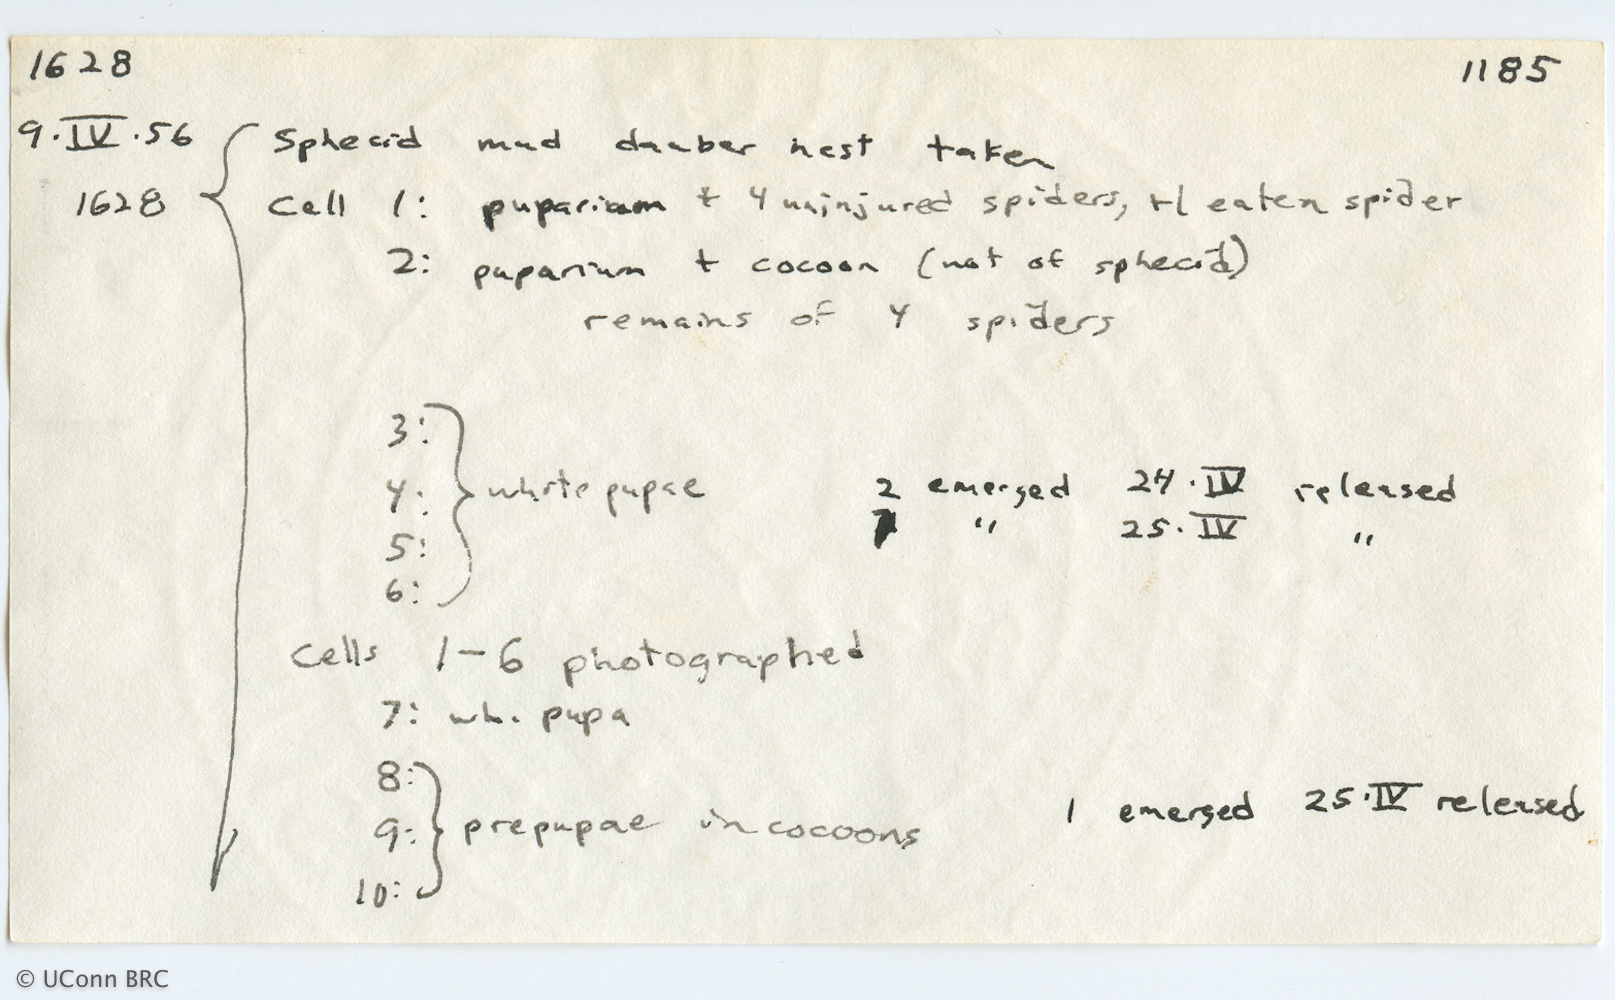 1628 1185
9.IV.56 Sphecid mud dauber nest taken
1628 Cell 1: puparium + 4 uninjured spiders, +1 eaten spider
2: puparium + cocoon (not of sphecid)
remains of 4 spiders
3:
4: white pupae 2 emerged 24.IV released
" 25.IV "
5:
6:
Cells 1-6 photographed
7: wh. pupa
8:
9: prepupae in cocoons 1 emerged 25.IV released
10:
© UConn BRC